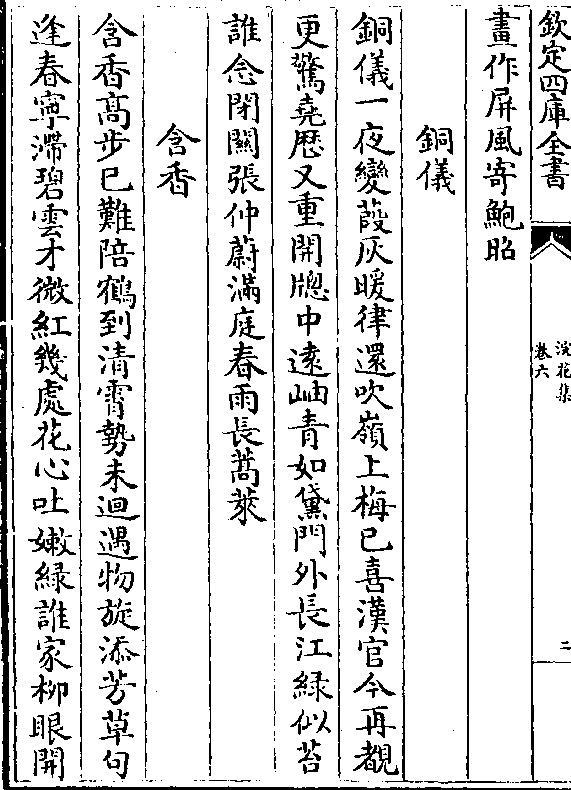 欽定四庫全書
浣花集
卷六
二
畫作屏風寄鮑昭
銅儀
銅儀一夜變葭灰暖律還吹嶺上梅已喜漢官今再覩
更驚堯歴又重開牕中逺岫青如黛門外長江緑似苔
誰念閉關張仲蔚滿庭春雨長蒿萊
含香
含香髙步已難陪鶴到清霄勢未迴遇物旋添芳草句
逢春寧滯碧雲才微紅幾處花心吐嫩緑誰家柳眼開